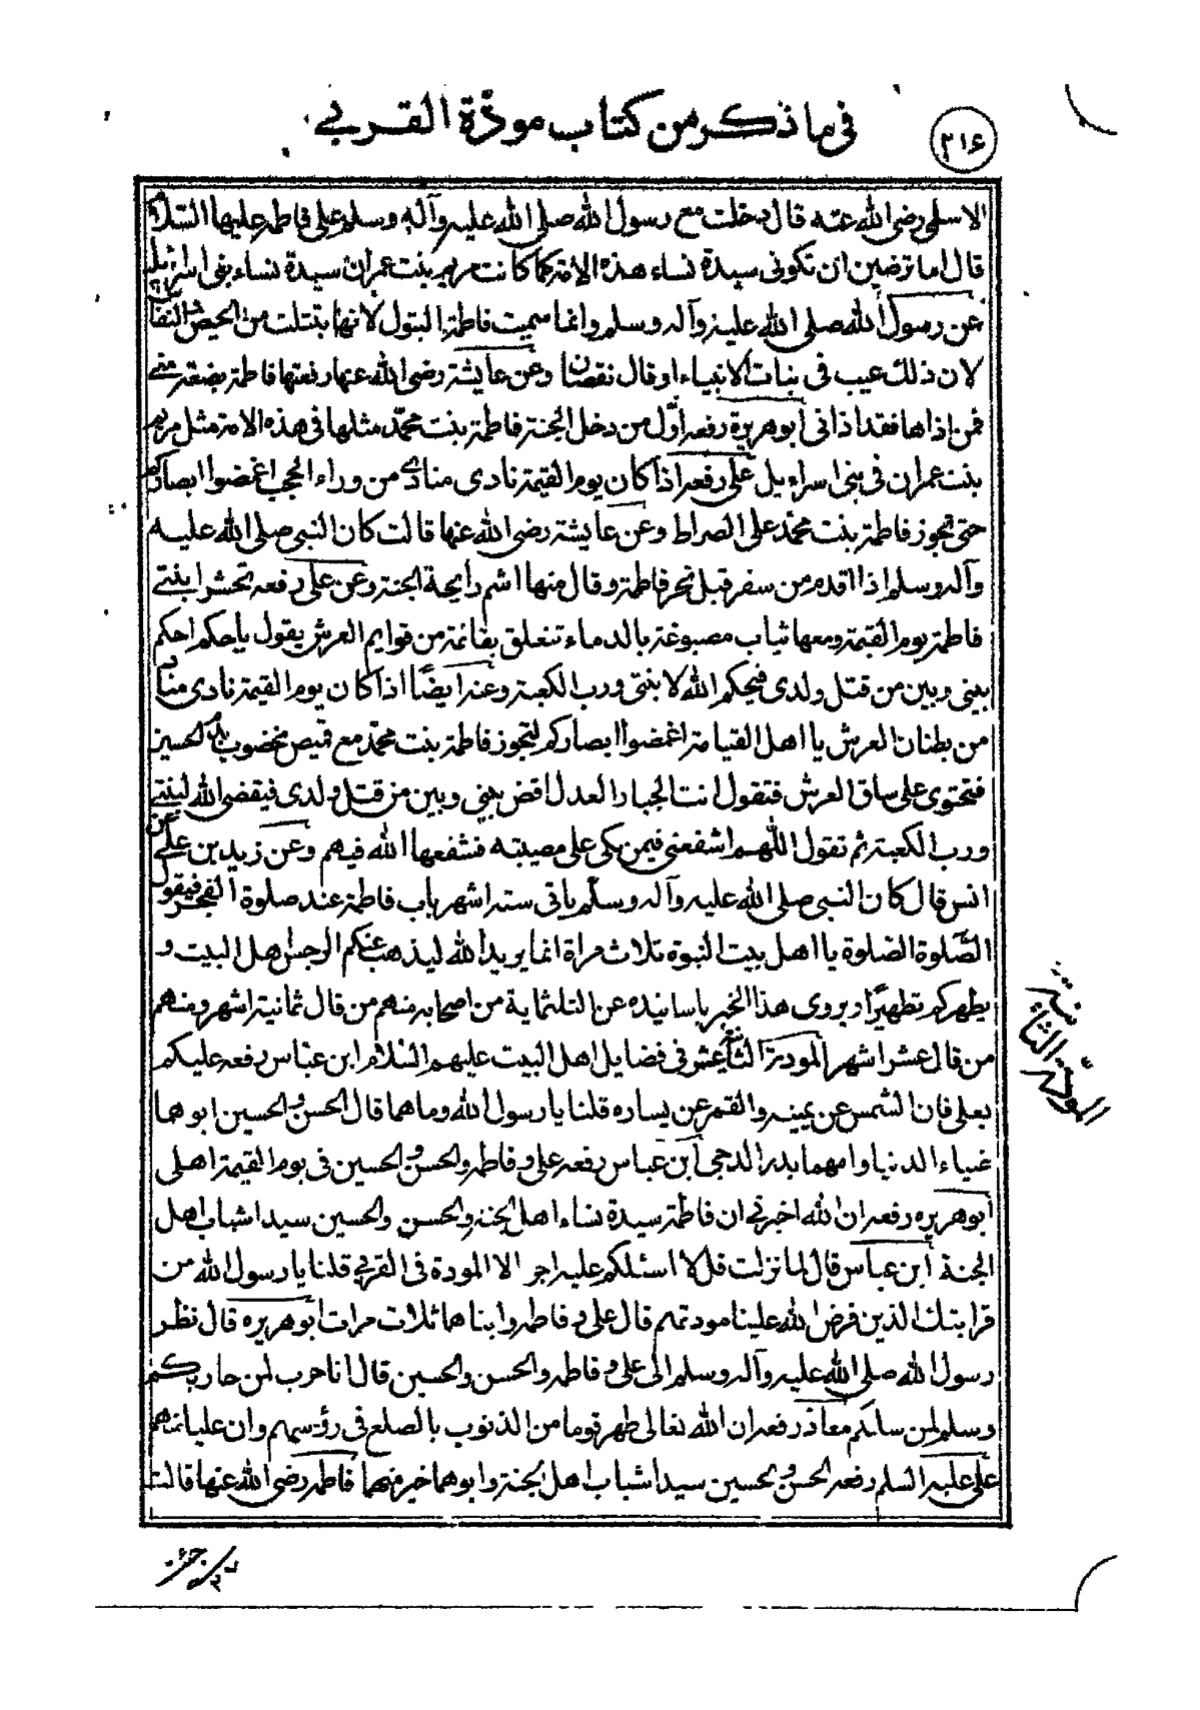 في ما ذكر من كتاب مودّة القربى
٢١٤
الاسلمي رضى الله عنه قال دخلت مع رسول الله صلى الله عليه وآله وسلم على فاطمة عليها السّلام
قال اما ترضين ان تكونى سيدة نساء هذه الامة كما كانت مريم بنت عمران سيدة نساء بنى اسرائيل
عن رسول الله صلى الله عليه وآله وسلم وانما سميت فاطمة البتول لانها تبتلت من الحيض والنفاس
لان ذلك عيب فى بنات الانبياء او قال نقصان وعن عايشة رضى الله عنها رفعتها فاطمة بضعة منى
فمن اذاها فقد اذانى أبو هريرة رفعه اوّل من دخل الجنة فاطمة بنت محمّد مثلها فى هذه الامة مثل مريم
بنت عمران فى بنى اسراءيل على رفعه اذا كان يوم القيمة نادى منادى من وراء الحجب اغضوا ابصاركم
حتى تجوز فاطمة بنت محمّد على الصراط وعن عايشة رضى الله عنها قالت كان النبى صلى الله عليه
وآله وسلم اذا اقدم من سفر قبل نحر فاطمة وقال منها اشم رايحة الجنة وعن على رفعه تحشر ابنتى
فاطمة يوم القيمة ومعها ثياب مصبوغة بالدماء تتعلق بقائمة من قوايم العرش يقول يا حكم احكم
بينى وبين من قتل ولدى فيحكم الله لابنتى ورب الكعبة وعنه ايضًا اذا كان يوم القيمة نادى مناد
من بطنان العرش يا اهل القيامة اغمضوا ابصاركم لتجوز فاطمة بنت محمّد مع قميص مخضوب بدم الحسين
فتحتوى على ساق العرش فتقول انت الجبار العدل اقض بينى وبين من قتل ولدى فيقضى الله لبنتى
ورب الكعبة ثم تقول اللهم اشفعنى فيمن بكى على مصيبته فشفعها الله فيهم وعن زيد بن على عن
انس قال كان النبى صلى الله عليه وآله وسلّم ياتى ستة اشهر باب فاطمة عند صلوة الفجر فيقول
الصّلوة الصّلوة يا اهل بيت النبوة ثلاث مراة انما يريد الله ليذهب عنكم الرجس اهل البيت و
يطهركم تطهيرًا ويروى هذا الخبر باسانيده عن الثلثماية من اصحابه منهم من قال ثمانية اشهر ومنهم
من قال عشر اشهر المودة الثانية عشر فى فضايل اهل البيت عليهم السّلام ابن عبّاس رفعه عليكم
المودة الثانية
بعلى فان الشمس عن يمينه والقمر عن يساره قلنا يا رسول الله وما هما قال الحسن والحسين ابوهما
ضياء الدنيا وامهما بدر الدجى ابن عباس رفعه على وفاطمة والحسن والحسين فى يوم القيمة اهلى
أبو هريره رفعه ان الله اخبرنى ان فاطمة سيدة نساء اهل الجنة والحسن والحسين سيدا شباب اهل
الجنة ابن عباس قال لما نزلت قل لا اسئلكم عليه اجر الا المودة فى القربى قلنا يا رسول الله من
قرابتك الذين فرض الله علينا مودتهم قال على وفاطمه وابناهما ثلاث مرات أبو هريره قال نظر
رسول الله صلى الله عليه وآله وسلم الى على وفاطمه والحسن والحسين قال انا حرب لمن حاربكم
وسلم لمن سالمكم معاذ رفعه ان الله تعالى طهر قوما من الذنوب بالصلع فى رؤسهم وان عليا منهم
على عليه السلم رفعه الحسن والحسين سيدا شباب اهل الجنة وابوهما خير منهما فاطمه رضى الله عنها قالت